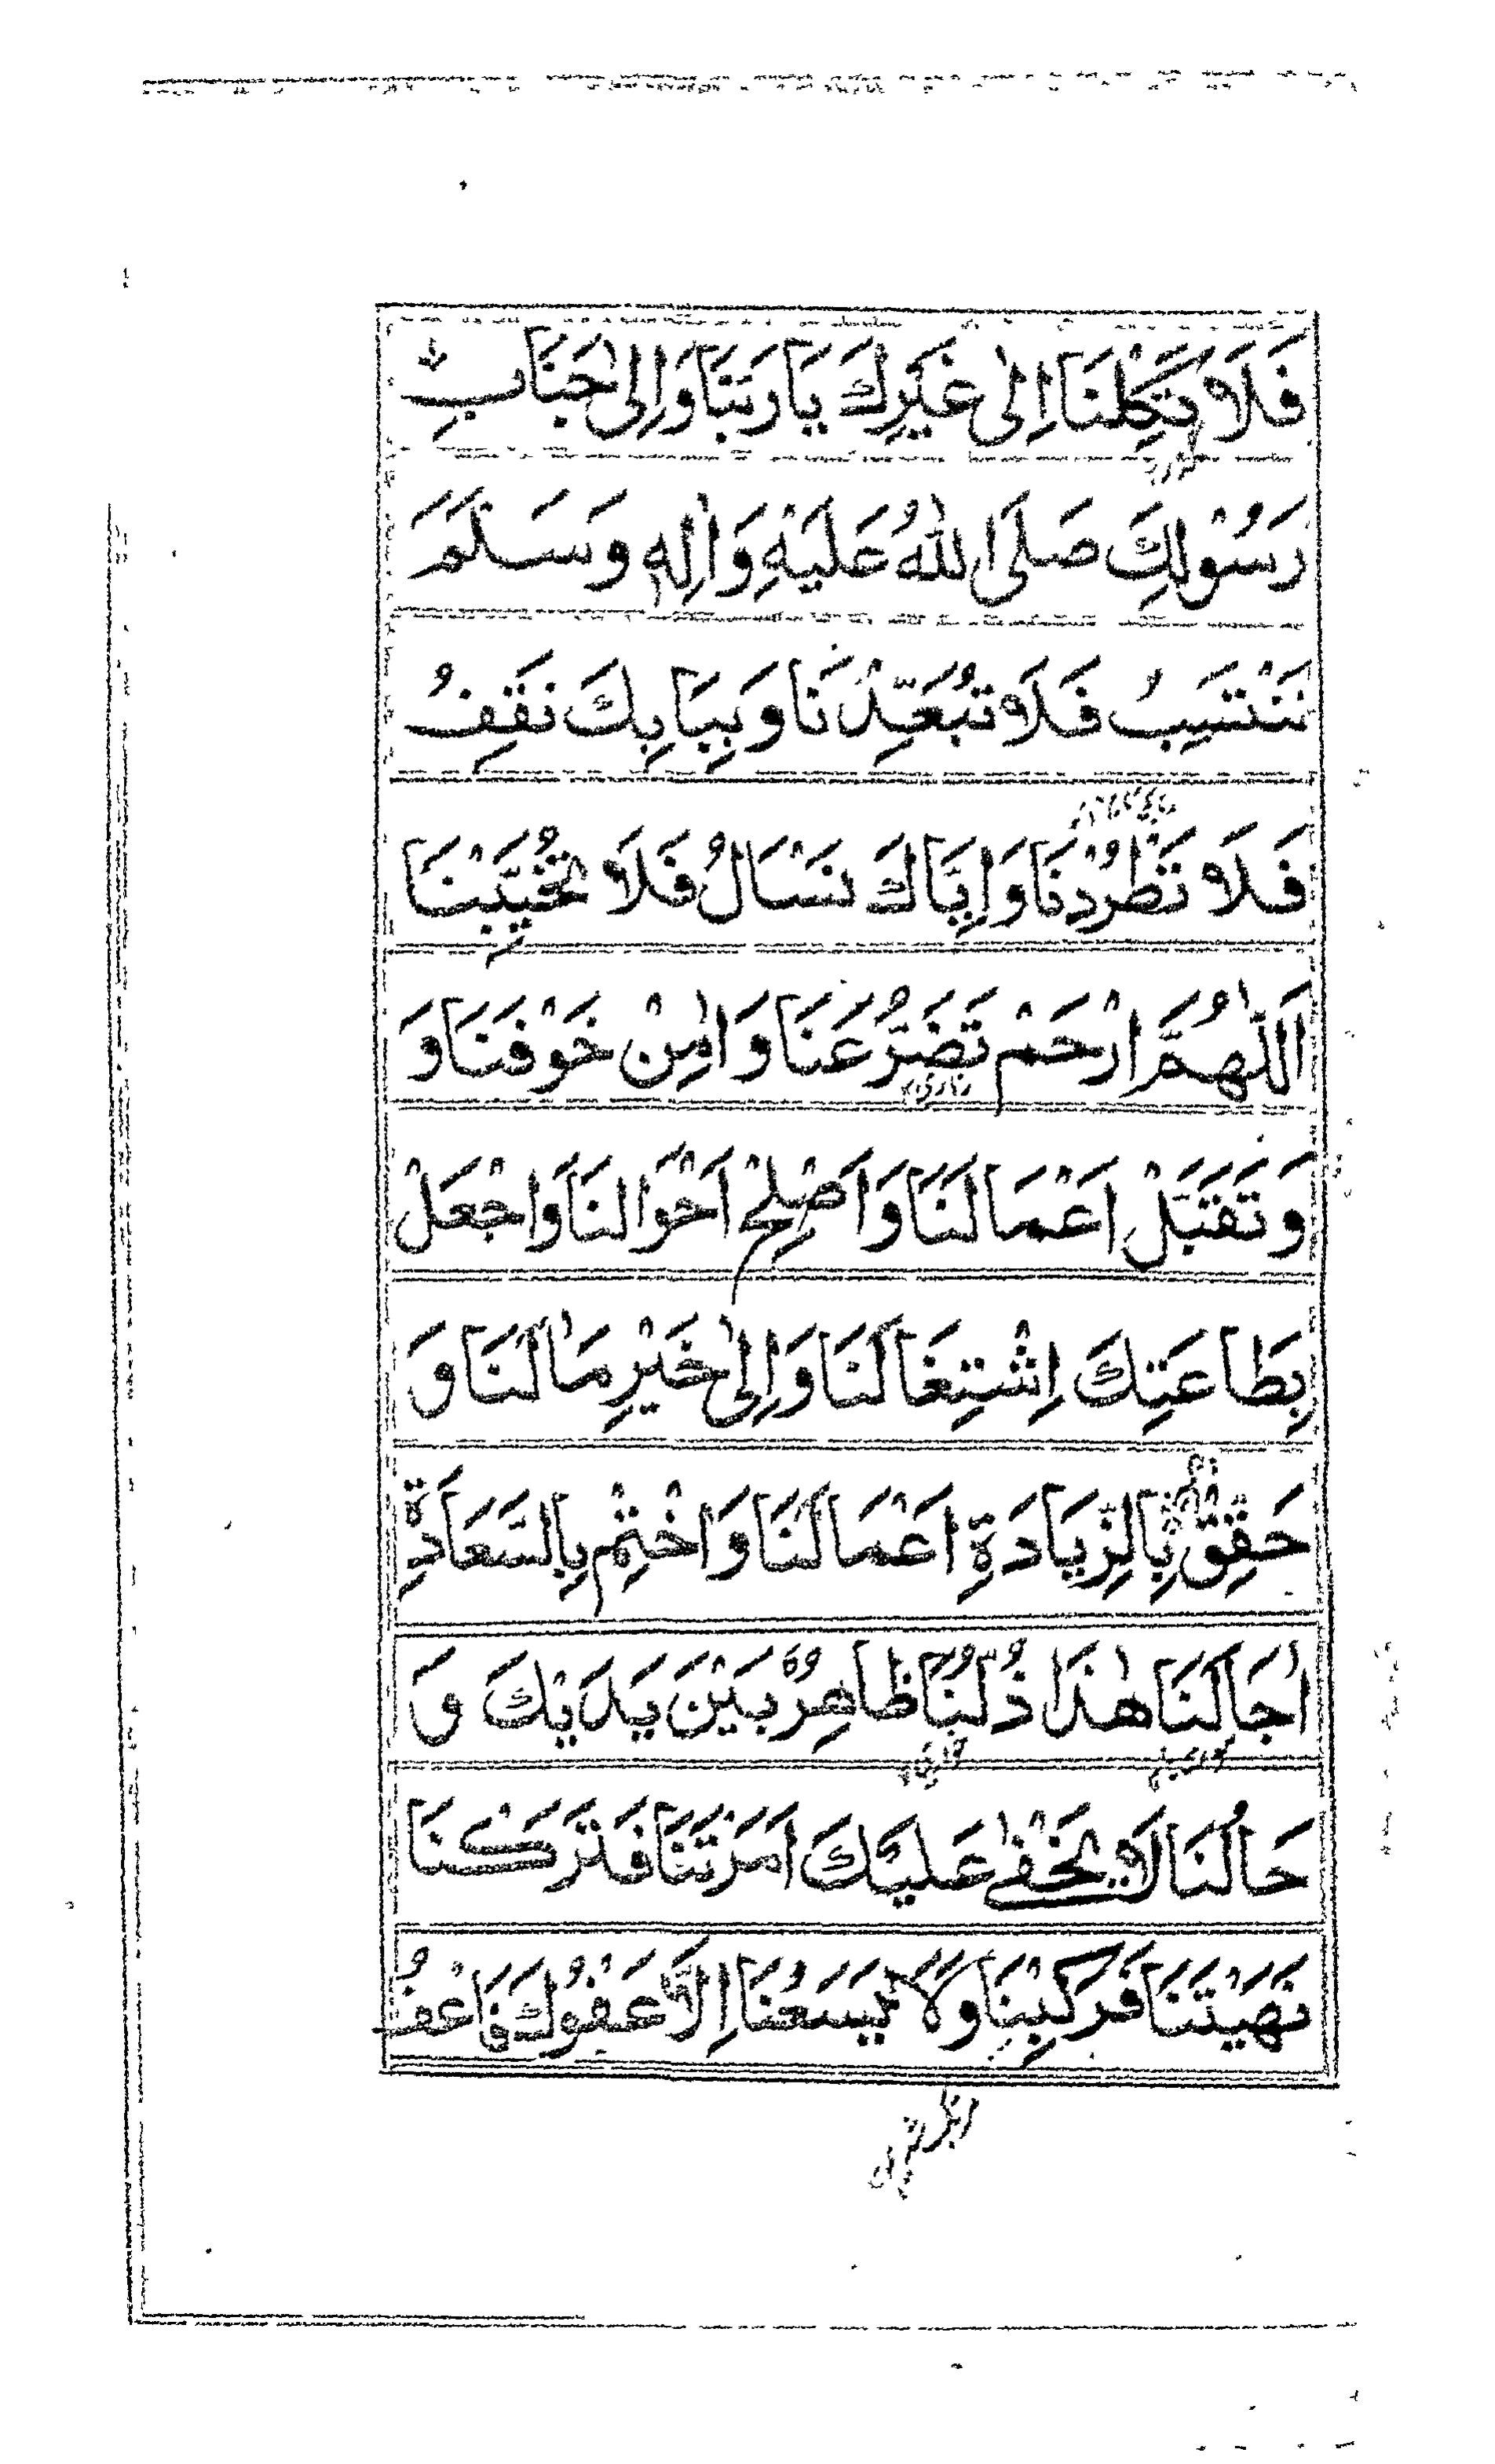 فَلَا تَكِلْنَا اِلٰى غَيْرِكَ يَا رَبَّنَا وَاِلٰى جَنَابِ
رَسُوْلِكَ صَلَّى اللّٰهُ عَلَيْهِ وَاٰلِهٖ وَسَلَّمَ
نَنْتَسِبُ فَلَا تُبَعِّدْنَا وَبِبَابِكَ نَقِفُ
فَلَا تَطْرُدْنَا وَاِيَّاكَ نَسْاَلُ فَلَا تُخَيِّبْنَا
اَللّٰهُمَّ ارْحَمْ تَضَرُّعَنَا وَاٰمِنْ خَوْفَنَا وَ
وَتَقَبَّلْ اَعْمَالَنَا وَاَصْلِحْ اَحْوَالَنَا وَاجْعَلْ
بِطَاعَتِكَ اِشْتِغَالَنَا وَاِلٰى خَيْرٍ مَاٰلَنَا وَ
حَقِّقْ بِالزِّيَادَةِ اَعْمَالَنَا وَاخْتِمْ بِالسَّعَادَةِ
اٰجَالَنَا هٰذَا ذُلُّنَا ظَاهِرٌ بَيْنَ يَدَيْكَ وَ
حَالُنَا لَا يَخْفٰى عَلَيْكَ اَمَرْتَنَا فَتَرَكْنَا
نَهَيْتَنَا فَرَكِبْنَا وَلَا يَسَعُنَا اِلَّا عَفْوُكَ فَاعْفُ